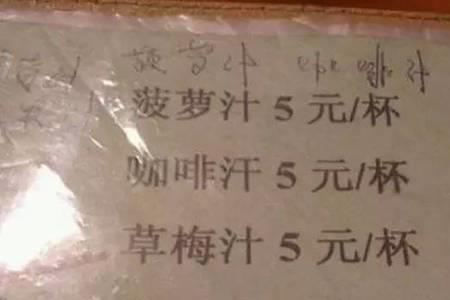 咖啡汁
菠萝汁 5 元/杯
咖啡汗 5 元/杯
草梅汁 5 元/杯